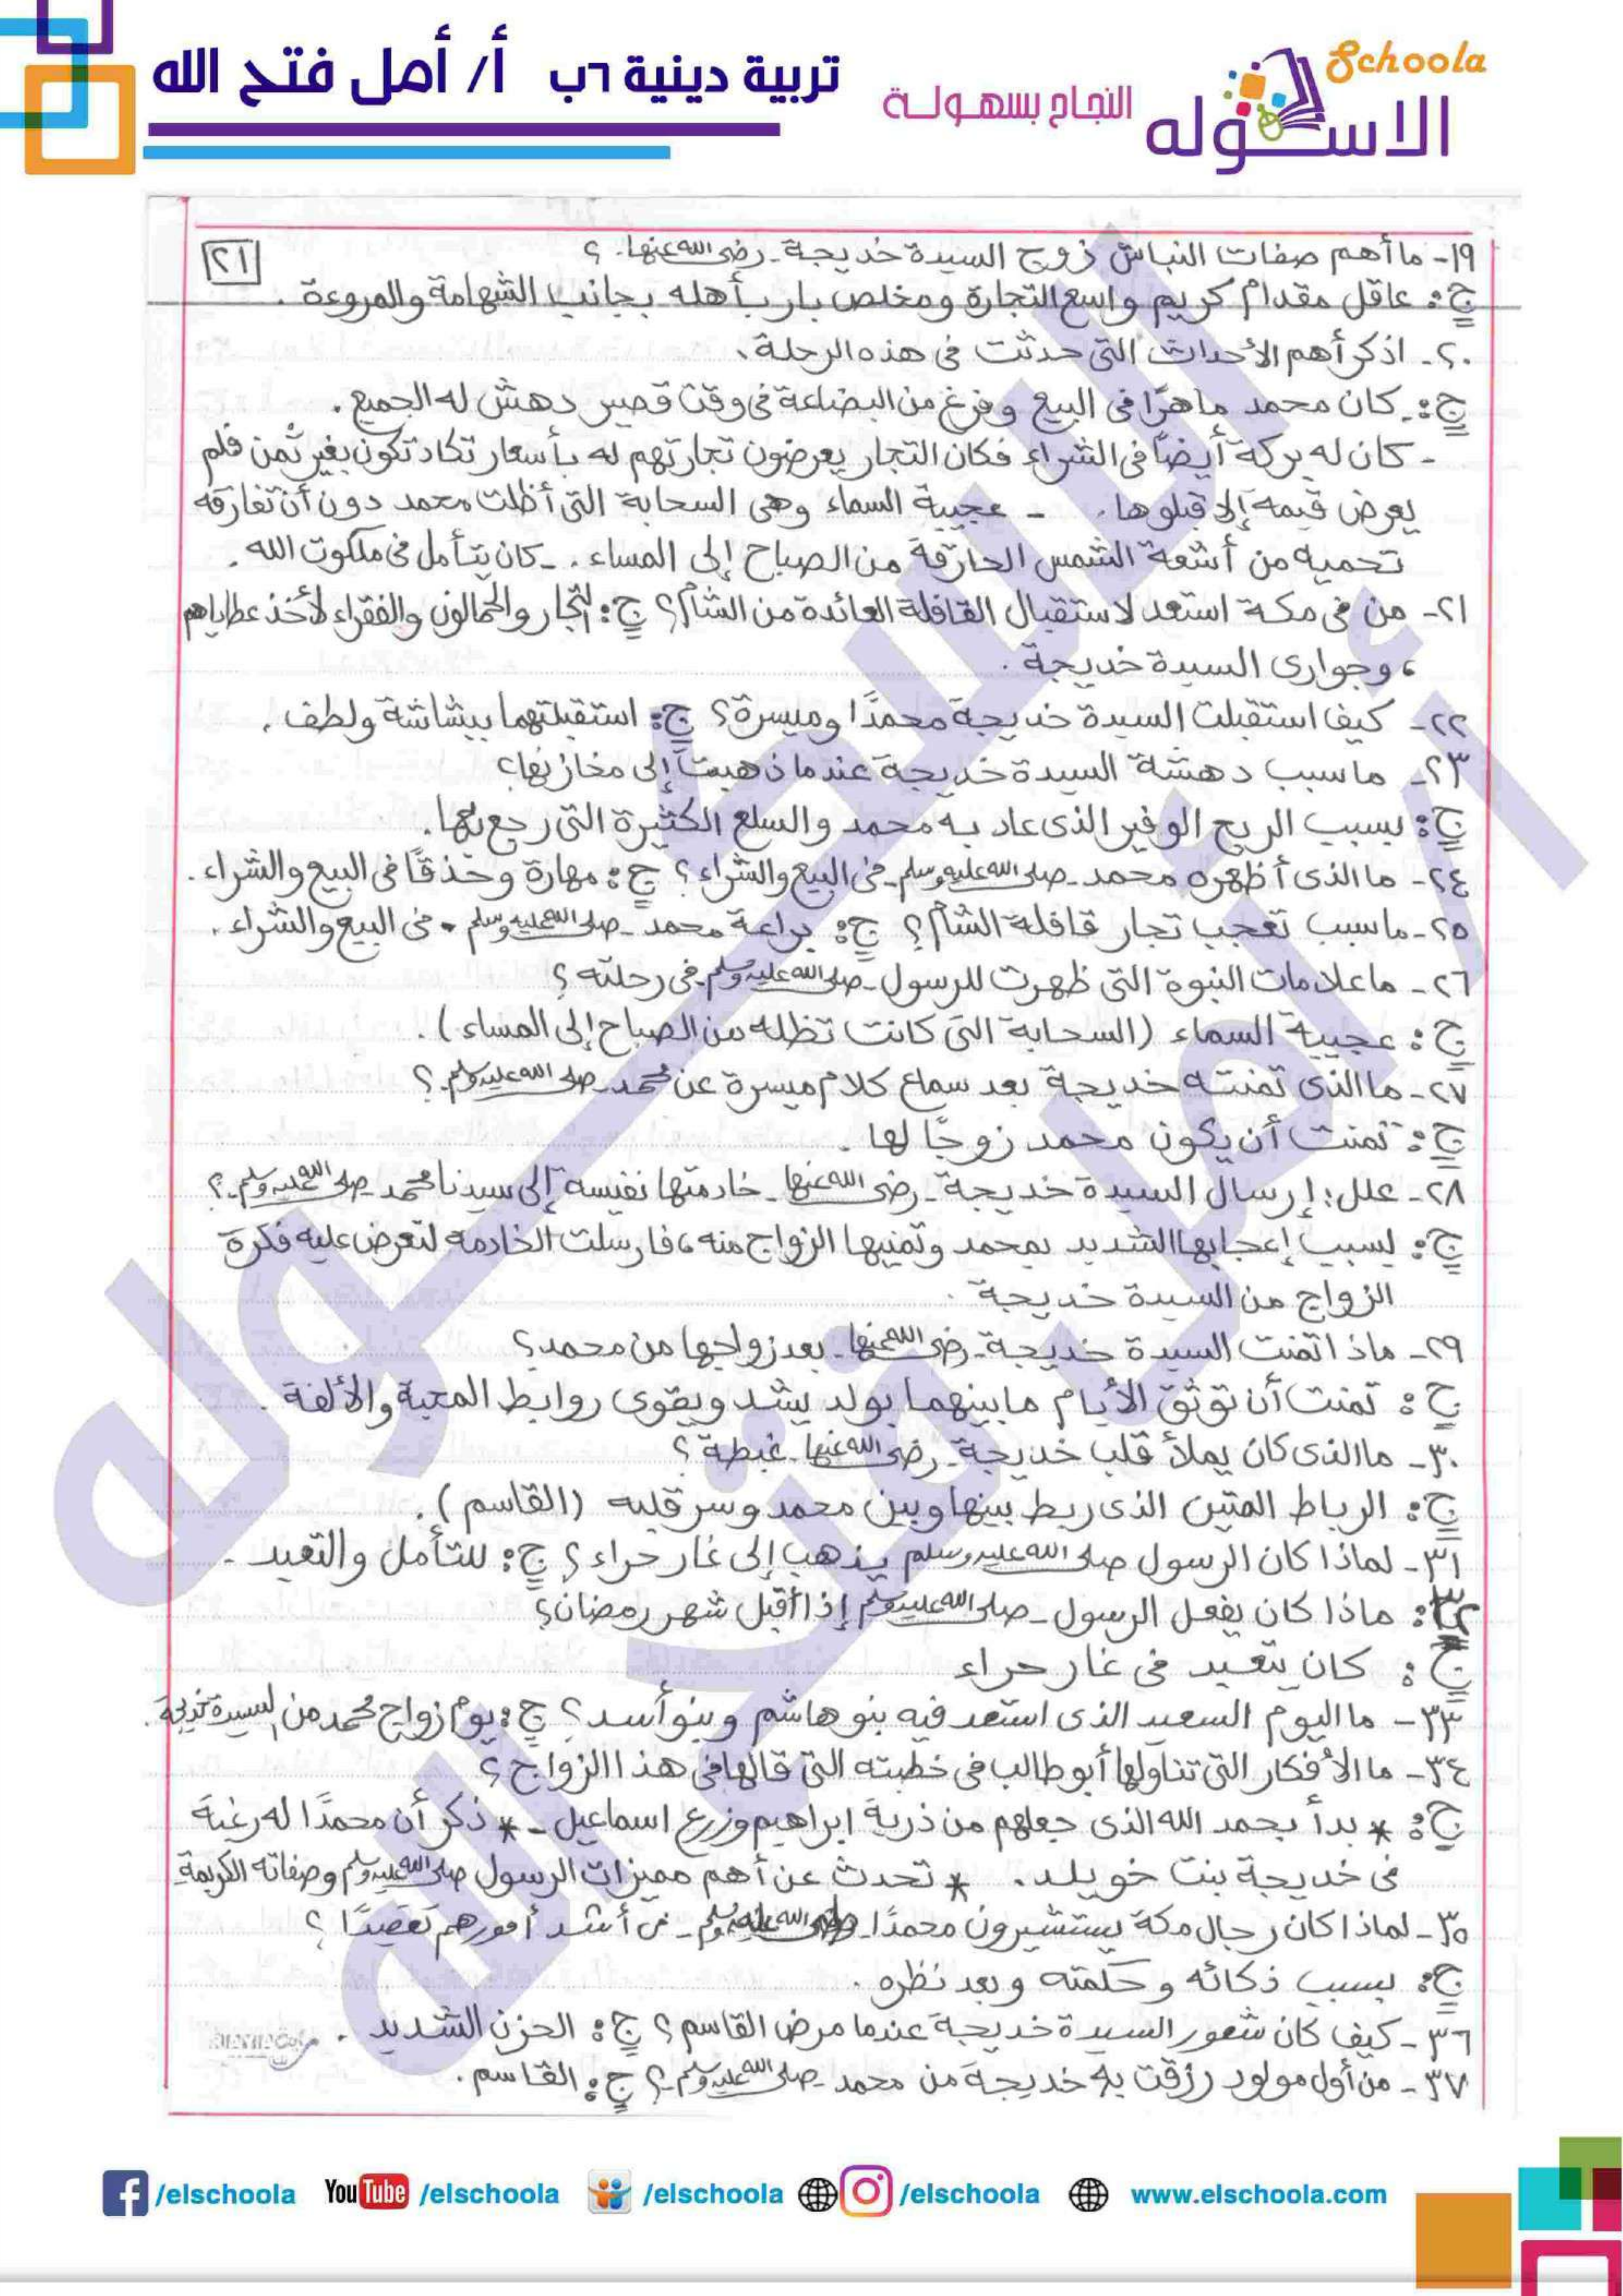 Schoola
الاسكوله
النجاح بسهولة
تربية دينية ٦ب أ/ أمل فتح الله
٢١
١٩- ما أهم صفات النباش زوج السيدة خديجة - رضى الله عنها - ؟
ج: عاقل مقدام كريم واسع التجارة ومخلص بار بأهله بجانب الشهامة والمروءة .
٢٠- اذكر أهم الأحداث التى حدثت فى هذه الرحلة .
ج: - كان محمد ماهرًا فى البيع وفرغ من البضاعة فى وقت قصير دهش له الجميع .
- كان له بركة أيضًا فى الشراء فكان التجار يعرضون تجارتهم له بأسعار تكاد تكون بغير ثمن فلم
يعرض قيمة إلا قبلوها . - عجيبة السماء وهى السحابة التى أظلت محمد دون أن تفارقه
تحميه من أشعة الشمس الحارقة من الصباح إلى المساء . - كان يتأمل فى ملكوت الله .
٢١- من فى مكة استعد لاستقبال القافلة العائدة من الشأم؟ ج: التجار والحمالون والفقراء لأخذ عطاياهم
، وجوارى السيدة خديجة .
٢٢- كيف استقبلت السيدة خديجة محمدًا وميسرة؟ ج: استقبلتهما ببشاشة ولطف .
٢٣- ما سبب دهشة السيدة خديجة عندما ذهبت إلى مخازنها؟
ج: بسبب الربح الوفير الذى عاد به محمد والسلع الكثيرة التى رجع بها .
٢٤- ما الذى أظهره محمد - صلى الله عليه وسلم - فى البيع والشراء ؟ ج: مهارة وحذقًا فى البيع والشراء .
٢٥- ما سبب تعجب تجار قافلة الشأم؟ ج: براعة محمد - صلى الله عليه وسلم - فى البيع والشراء .
٢٦- ما علامات النبوة التى ظهرت للرسول - صلى الله عليه وسلم - فى رحلته ؟
ج: عجيبة السماء (السحابة التى كانت تظله من الصباح إلى المساء ) .
٢٧- ما الذى تمنته خديجة بعد سماع كلام ميسرة عن محمد - صلى الله عليه وسلم - ؟
ج: تمنت أن يكون محمد زوجًا لها .
٢٨- علل: إرسال السيدة خديجة - رضى الله عنها - خادمتها نفيسة إلى سيدنا محمد - صلى الله عليه وسلم - ؟
ج: لسبب إعجابها الشديد بمحمد وتمنيها الزواج منه ، فارسلت الخادمة لتعرض عليه فكرة
الزواج من السيدة خديجة .
٢٩- ماذا تمنت السيدة خديجة - رضى الله عنها - بعد زواجها من محمد ؟
ج: تمنت أن توثق الأيام ما بينهما بولد يشد ويقوى روابط المحبة والألفة .
٣٠- ما الذى كان يملأ قلب خديجة - رضى الله عنها - غبطة ؟
ج: الرباط المتين الذى ربط بينها وبين محمد وسر قلبه (القاسم ) .
٣١- لماذا كان الرسول صلى الله عليه وسلم يذهب إلى غار حراء ؟ ج: للتأمل والتعبد .
٣٢: ماذا كان يفعل الرسول - صلى الله عليه وسلم إذا أقبل شهر رمضان؟
ج: كان يتعبد فى غار حراء
٣٣- ما اليوم السعيد الذى استعد فيه بنو هاشم وبنو أسد ؟ ج: يوم زواج محمد من السيدة خديجة .
٣٤- ما الأفكار التى تناولها أبو طالب فى خطبته التى قالها فى هذا الزواج ؟
ج: * بدأ بحمد الله الذى جعلهم من ذرية ابراهيم وزرع اسماعيل - * ذكر أن محمدًا له رغبة
فى خديجة بنت خويلد . * تحدث عن أهم مميزات الرسول صلى الله عليه وسلم وصفاته الكريمة
٣٥- لماذا كان رجال مكة يستشيرون محمدًا - صلى الله عليه وسلم - فى أشد أمورهم تعقيدًا ؟
ج: بسبب ذكائه وحكمته وبعد نظره .
٣٦- كيف كان شعور السيدة خديجة عندما مرض القاسم ؟ ج: الحزن الشديد .
٣٧- من أول مولود رزقت به خديجة من محمد - صلى الله عليه وسلم - ؟ ج: القاسم .
الاسكوله
أ/ أمل فتح الله
/elschoola YouTube /elschoola /elschoola /elschoola www.elschoola.com